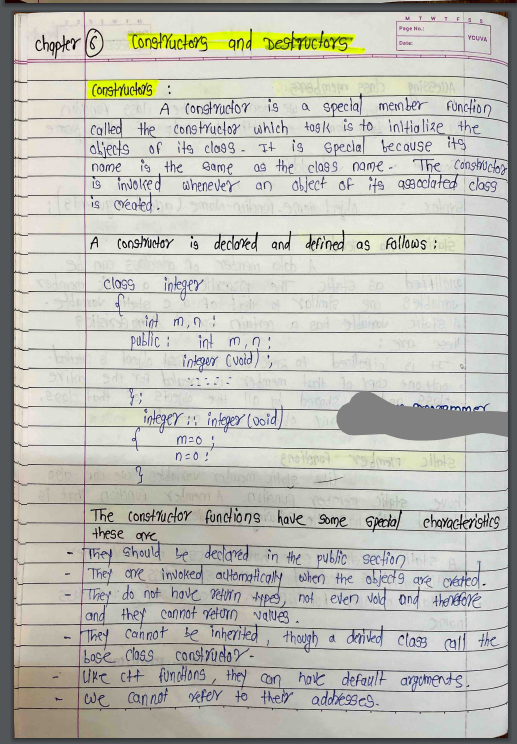 M T W T F S S
Page No.:
Date:
YOUVA
chapter 6 Constructors and Destructors
Constructors :
A constructor is a special member function
called the constructor which task is to initialize the
objects of its class. It is special because its
name is the same as the class name. The constructor
is invoked whenever an object of its associated class
is created.
A constructor is declared and defined as follows :
class integer
{
int m,n ;
public : int m,n ;
integer (void) ;
......
};
integer :: integer (void)
{ m=0 ;
n=0 ;
}
The constructor functions have some special characteristics
these are
- They should be declared in the public section
- They are invoked automatically when the objects are created.
- They do not have return types, not even void and therefore
and they cannot return values.
- They cannot be inherited, though a derived class call the
base class constructor-
- Like c++ functions, they can have default arguments.
- we cannot refer to their addresses.